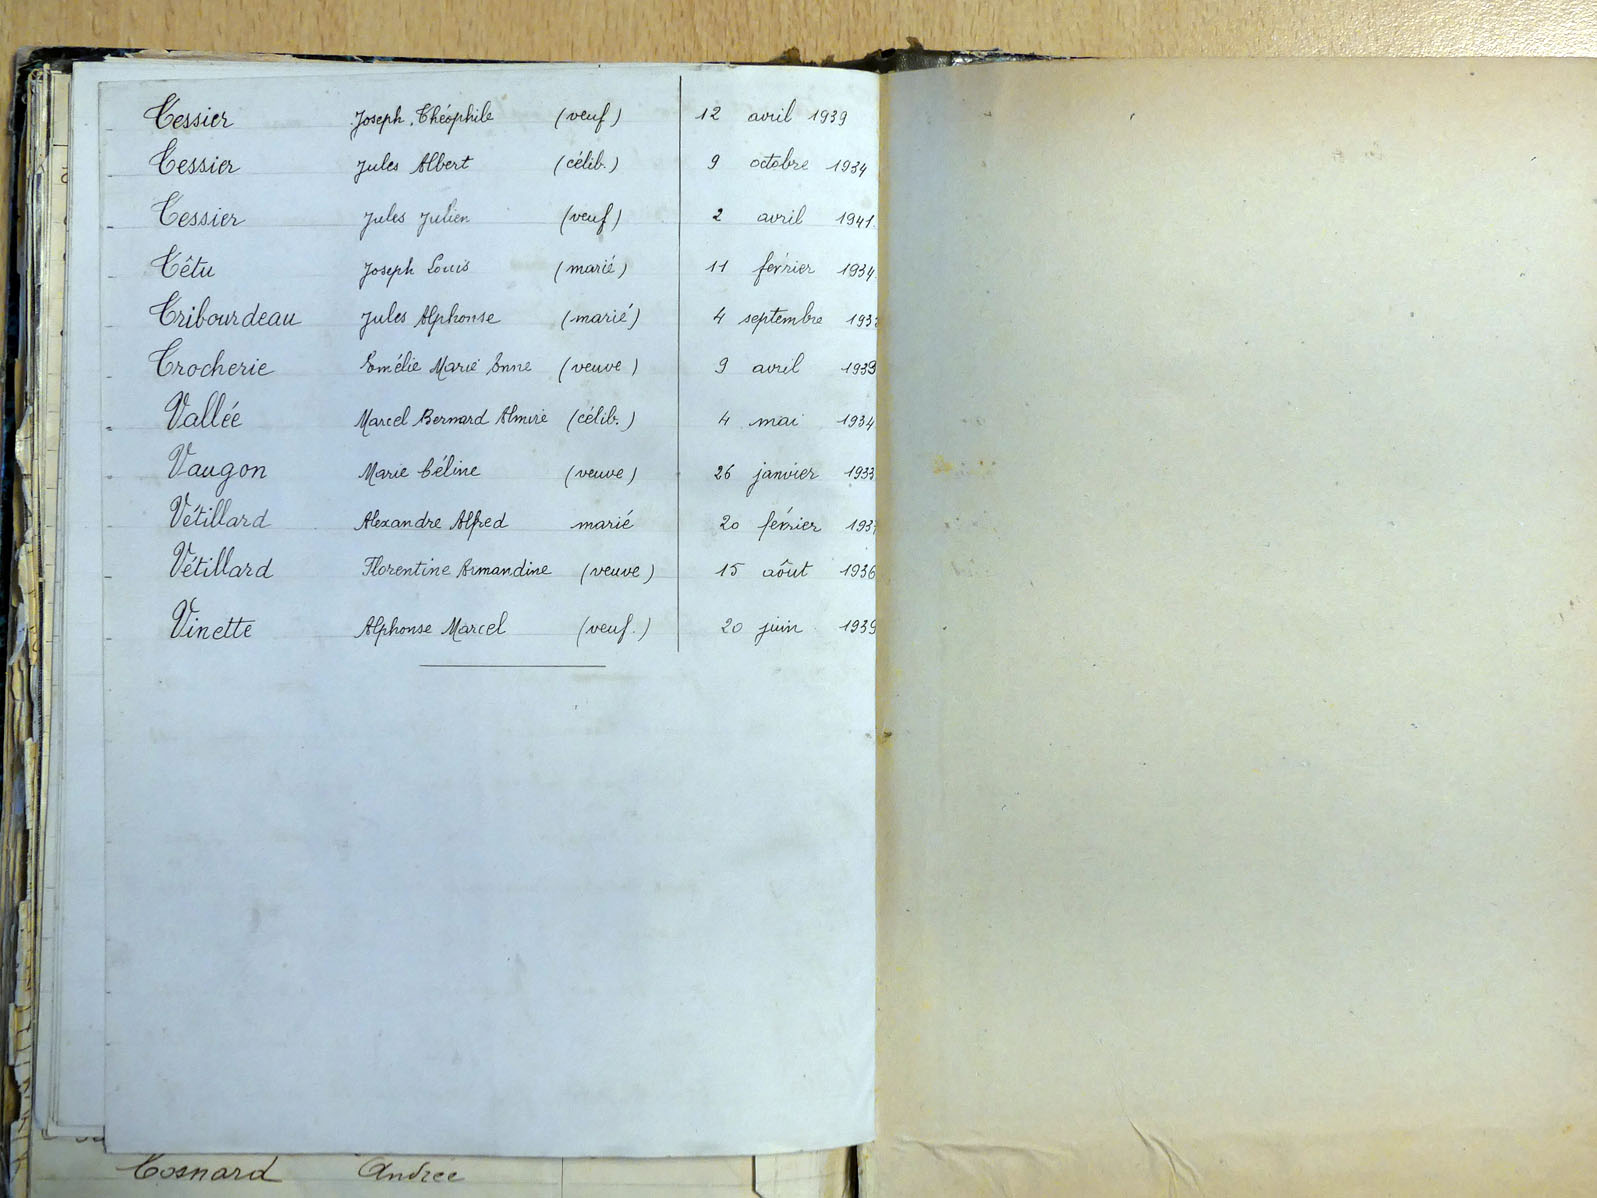 Tessier Joseph Théophile (veuf) 12 avril 1939
Tessier Jules Albert (célib.) 9 octobre 1934
Tessier Jules Julien (veuf) 2 avril 1941
Têtu Joseph Louis (marié) 11 février 1934
Tribourdeau Jules Alphonse (marié) 4 septembre
Trocherie Emélie Marie Anne (veuve) 9 avril 1939
Vallée Marcel Bernard Almire (célib.) 4 mai 1934
Vaugon Marie Céline (veuve) 26 janvier 1933
Vétillard Alexandre Alfred marié 20 février
Vétillard Florentine Armandine (veuve) 15 aôut 1936
Vinette Alphonse Marcel (veuf.) 20 juin 1939
Cosnard Andrée